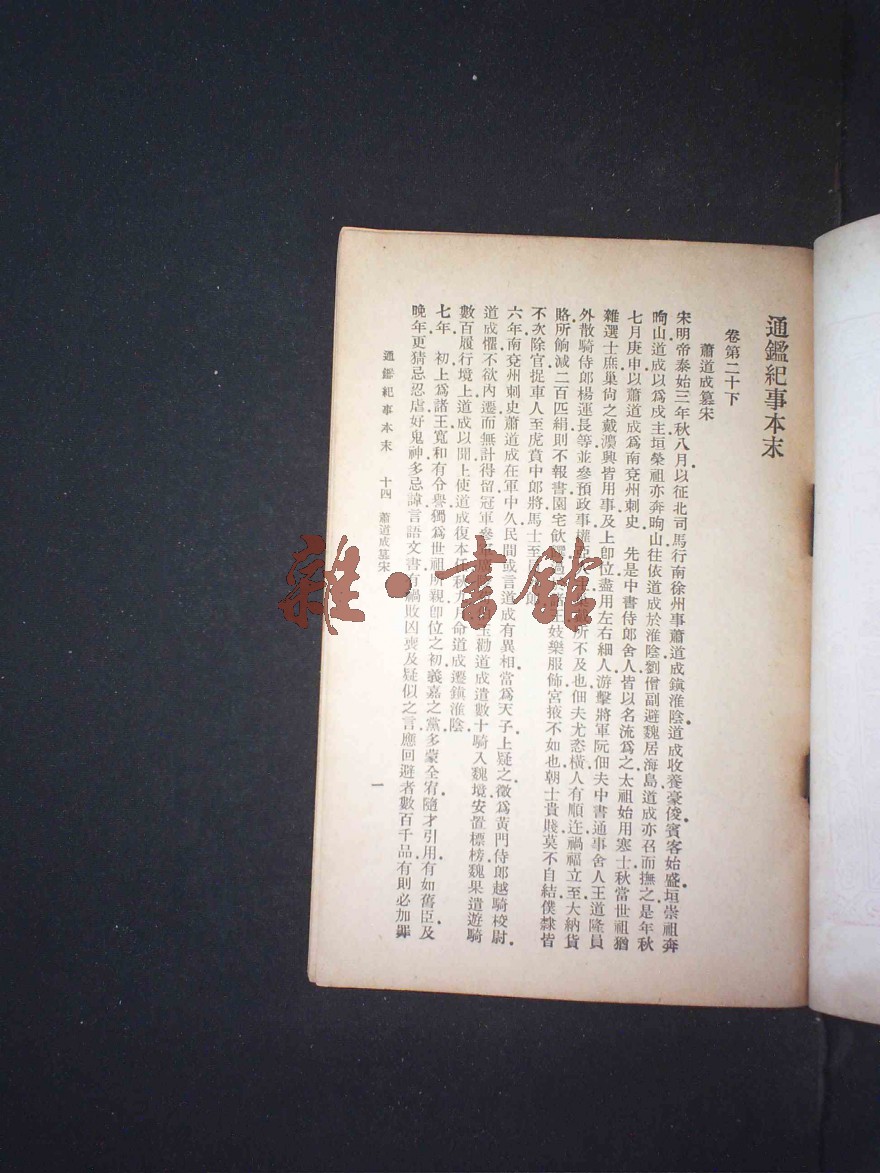 通鑑紀事本末
卷第二十下
蕭道成篡宋
宋明帝泰始三年秋八月以征北司馬行南徐州事蕭道成鎮淮陰道成收養豪俊賓客始盛垣崇祖奔
朐山道成以為戍主垣榮祖亦奔朐山往依道成於淮陰劉僧副避魏居海島道成亦召而撫之是年秋
七月庚申以蕭道成為南兗州刺史　先是中書侍郎舍人皆以名流為之太祖始用寒士秋當世祖猶
雜選士庶巢尚之戴灋興皆用事及上卽位盡用左右細人游擊將軍阮佃夫中書通事舍人王道隆員
外散騎侍郎楊運長等並參預政事權亞 所不及也佃夫尤恣橫人有順迕禍福立至大納貨
賂所餉減二百匹絹則不報書園宅飲饌過 諸王妓樂服飾宮掖不如也朝士貴賤莫不自結僕隸皆
不次除官捉車人至虎賁中郎將馬士至 郎
六年南兗州刺史蕭道成在軍中久民間或言道成有異相當為天子上疑之徵為黃門侍郎越騎校尉
道成懼不欲內遷而無計得留冠軍參軍廣 勸道成遣數十騎入魏境安置標榜魏果遣遊騎
數百履行境上道成以聞上使道成復本任秋九月命道成遷鎮淮陰
七年　初上為諸王寬和有令譽獨為世祖所親卽位之初義嘉之黨多蒙全宥隨才引用有如舊臣及
晚年更猜忌忍虐好鬼神多忌諱言語文書有禍敗凶喪及疑似之言應回避者數百千品有則必加罪
通鑑紀事本末　十四　蕭道成篡宋　一
雜·書館